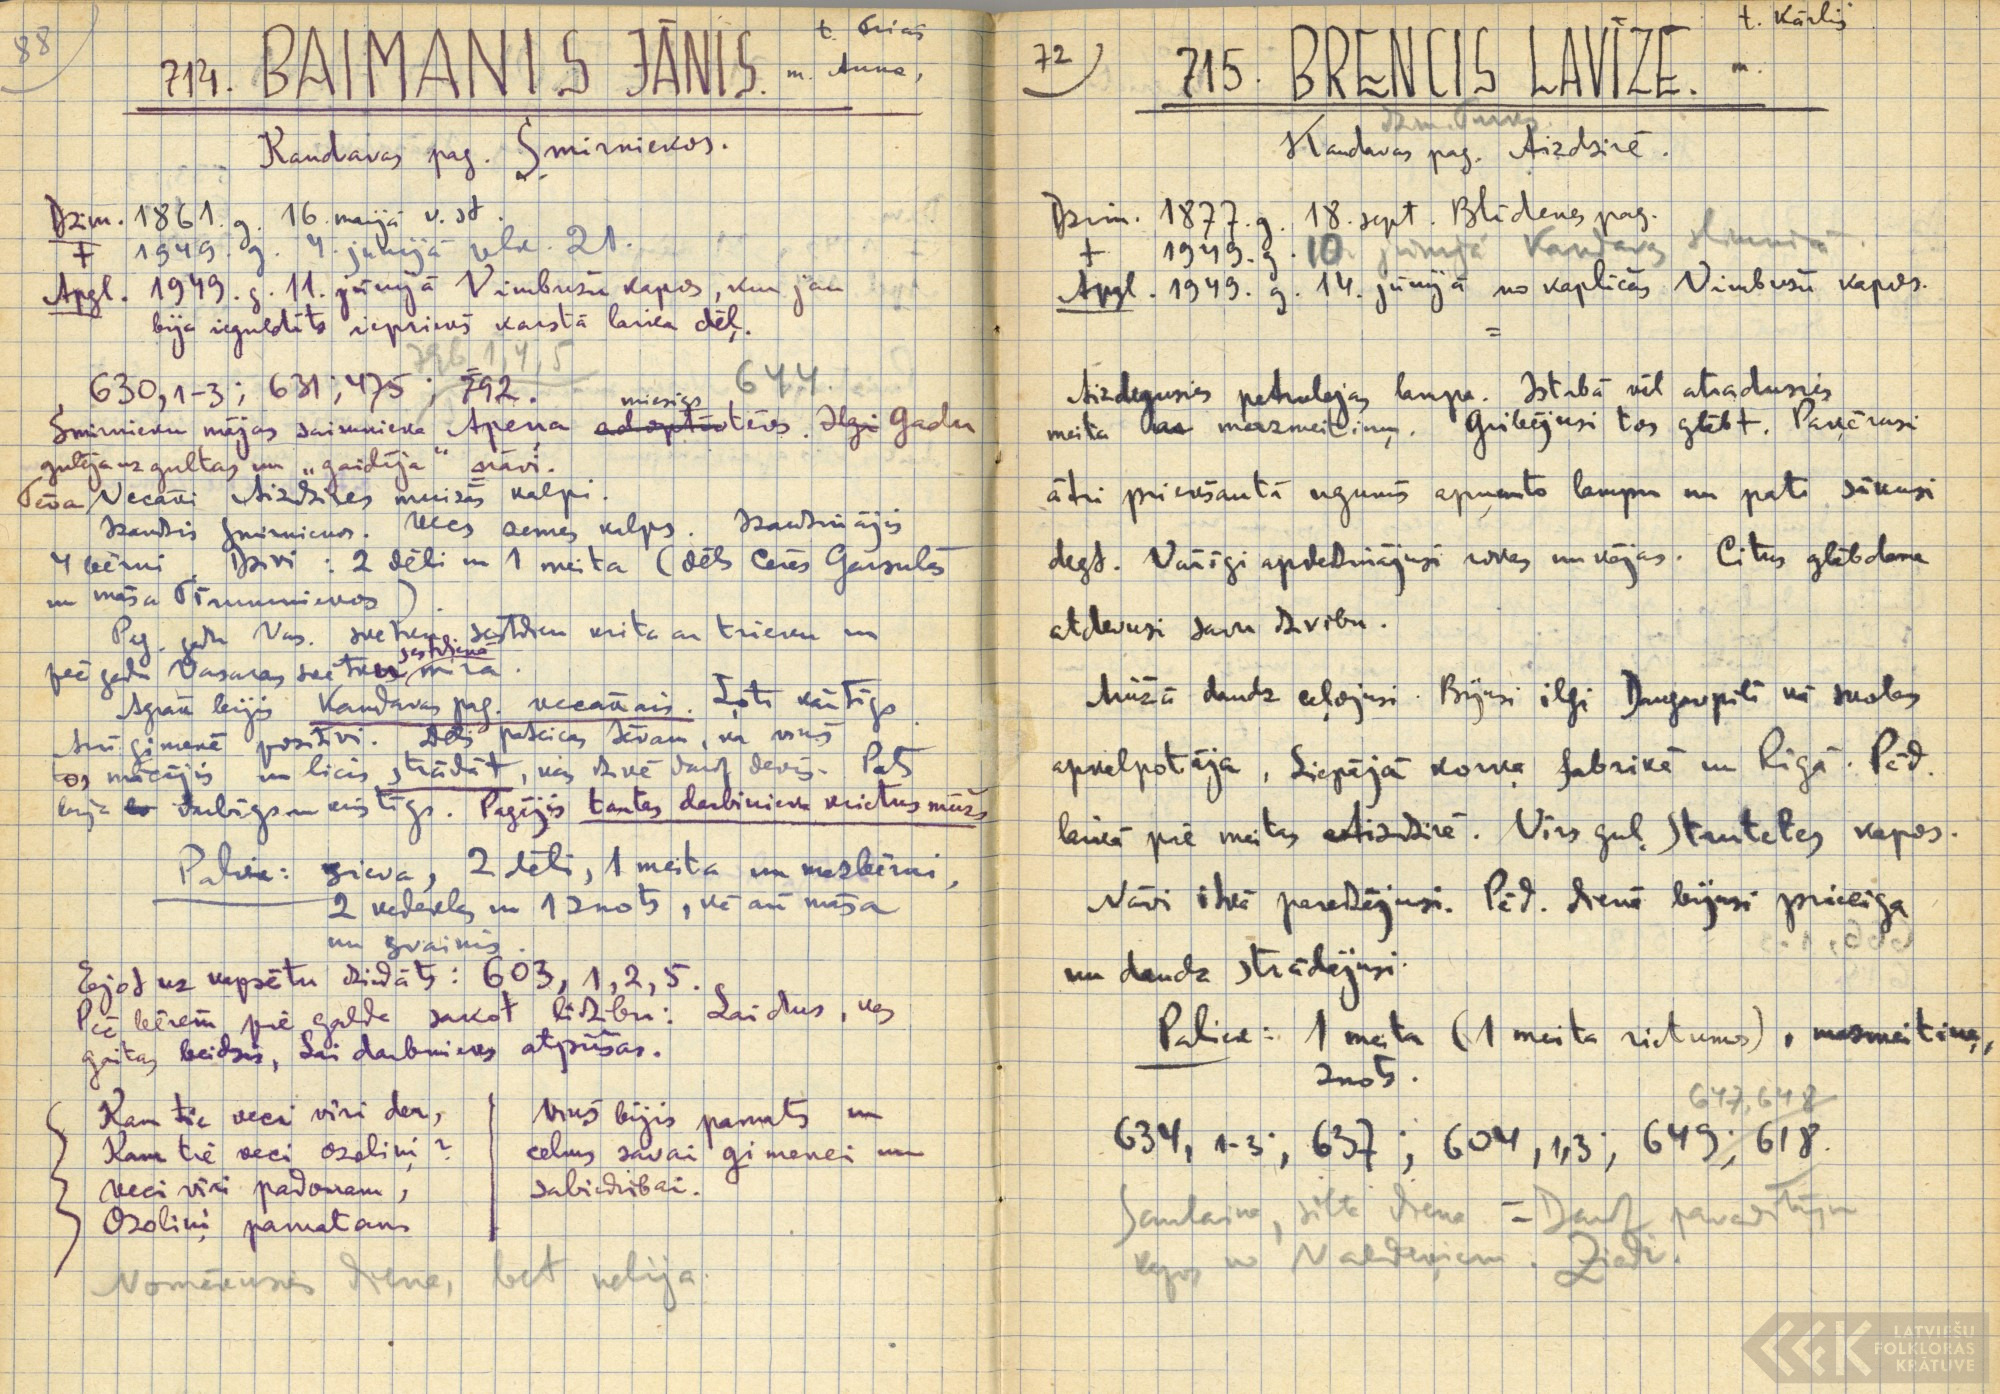 88
714. BAIMANIS JĀNIS.
t. Friās
m. Anna,
Kandavas pag. Šmirniekos.
Dzim. 1861. g. 16. maijā v. st.
+ 1949. g. 7. jūnijā plk. 21.
Apgl. 1949. g. 11. jūnijā Vimbušu kapos, kur jau
bija ieguldīts iepriekš karstā laika dēļ.
630, 1-3; 631; 475; 792.
1, 4, 5
644.
miesīgs
Šmirnieku mājas saimnieka tēvs. Gadu
gulēja uz gultas un „gaidīja“ nāvi.
Tēva Vecāki Aizdzires muižas kalpi.
Izaudzis Šmirniekos. Vecs zemes kalps. Izaudzinājis
4 bērni. Dzīvi: 2 dēli un 1 meita (dēls Cēres Garsulās
un māsa )
Pag. gadu Vas. svētku sestdien krita ar trieku un
sestdienā
pēc gada Vasaras svētku mira.
Agrāk bijis Kandavas pag. vecākais. Ļoti kārtīgs
ģimenē pozitīvi. Dēls pateicas tēvam, ka viņš
tos mācījis un licis strādāt, kas dzīvē daudz devis. Pats
bija darbīgs un kristīgs. Pagājis tautas darbinieka krietns mūžs
Paliek: sieva, 2 dēli, 1 meita un mazbērni,
2 vedeklas un 1 znots, kā arī māsa
un svainis.
Ejot uz kapsētu dziedāts: 603, 1, 2, 5.
Pēc bērēm pie galda sakot līdzību: Laidus, kas
gaitas beidzis, Lai darbinieks atpūšas.
Kam tie veci vīri der,
Kam tie veci ozoliņi?
Veci vīri padomam,
Ozoliņi pamatam
Viņš bijis pamats un
celms savai ģimenei un
sabiedrībai.
Nomākusies diena, bet nelija.
72
715. BRENCIS LAVĪZE.
t. Kārlis
m.
dzim.
Kandavas pag. Aizdzirē.
Dzim. 1877. g. 18. sept. Blīdenes pag.
+ 1949. g. 10. jūnijā Kandavas slimnīcā.
Apgl. 1949. g. 14. jūnijā no kapličas Vimbušu kapos.
=
Aizdegusies petrolejas lampa. Istabā vēl atradusies
meita mazmeitiņu. Gribējusi tos glābt. Pakērusi
ātri priekšautā uguns apņemto lampu un pati sākusi
degt. Vārīgi apdedzinājusi rokas un kājas. Citus glābdama
atdevusi savu dzīvību.
Mūžā daudz ceļojusi. Bijusi ilgi Daugavpilī kā skolas
apkalpotāja, Liepājā korķa fabrikā un Rīgā. Pēd.
laikā pie meitas Aizdzirē. Vīrs guļ Strutelas kapos.
Nāvi it kā paredzējusi. Pēd. dienā bijusi priecīga
un daudz strādājusi.
Paliek: 1 meita (1 meita rietumos), mazmeitiņa,
znots.
647, 648
634, 1-3; 637; 604, 1,3; 649; 618.
Saulaina, silta diena = Daudz pavadītāju
kapos no Valdeķiem. Ziedi.
LATVIEŠU
FOLKLORAS
KRĀTUVE